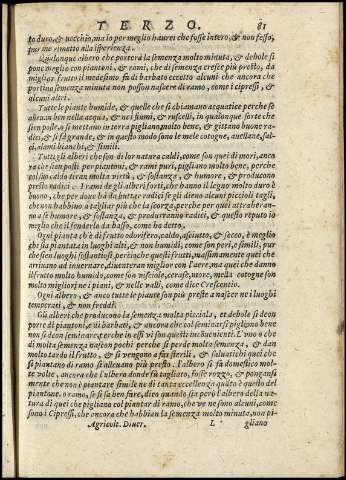 TERZO. 81
to duro, & vecchio, ma io per meglio haurei che fosse intero, & non fesso,
pur me rimetto alla isperienza.
Qualonque albero che portera la semenza molto minuta, & debole si
pone meglio con piantoni, & rami, che di semenza cresce piu presto, da
miglior frutto il medesimo fa di barbato eccetto alcuni che ancora che
portino semenza minuta non posson nascere di ramo, come i cipressi, &
alcuni altri.
Tutte le piante humide, & quelle che si chiamano acquatice perche se
alleuan ben nella acqua, & nei fiumi, & ruscelli, in qualonque sorte che
sien poste, o si mettano in terra pigliano molto bene, & gittano buone ra-
dici, & si fa grande, & in questo modo sono le mele cotogne, auellane, sal-
ci, alami bianchi, & simili.
Tutti gli alberi che son di lor natura caldi, come son quei di mori, anco
ra che sien posti per piantoni, & rami puri, pigliano molto bene, perche
col suo caldo tiran molta virtù, & sostanza, & humore, & producono
presto radici. I rami de gli alberi forti, che hanno il legno molto duro è
buono, che per doue ha da buttar radici se gli dieno alcuni piccioli tagli,
che non habbino a tagliar più che la scorza, perche per quei attraheran-
no a se humore, & sostanza, & produrranno radici, & questo reputo io
meglio che il fenderlo da basso, come ho detto.
Ogni pianta ch'è di frutto odorifero, caldo, asciuto, & secco, è meglio
che sia piantata in luoghi alti, & non humidi, come son peri, e simili, pur
che sien luoghi sostantiosi, percioche questi frutti, massimamente quei che
arriuano ad inuernare, diuenteran miglior con l'aere, ma quei che danno
il frutto molto humido, come son visciole, cerase, more, mella cotogne son
molto migliori ne i piani, & nelle valli, come dice Crescentio.
Ogni albero, & anco tutte le piante son più preste a nascer ne i luoghi
temperati, & non freddi.
Gli alberi che producono la semenza molta picciola, et debole si deon
porre di piantoni, & di barbati, & ancora che col seminarsi pigliano bene
non si deon seminare, perche in essi vi son questi inconuenienti. L'vno che
di molta semenza nascon pochi perche si perde molta semenza, & dan
molto tardo il frutto, & si vengono a far sterili, & saluatichi quei che
si piantano di ramo s'alleuano più presto. l'albero si fa domestico mol-
te volte, ancora che l'albero donde fu tagliato, fosse rozzo, & pongansi
mente che non è piantare simile ne di tanta eccellenza quāto è questo del
piantone, o ramo, se si sa ben fare, dico quando sia però l'albero della na-
tura di quei che pigliano col piantar di ramo, che ve ne sono alcuni, come
sono i Cipressi, che ancora che habbian la semenza molto minuta, non pi-
Agricolt. Diuer. L gliano